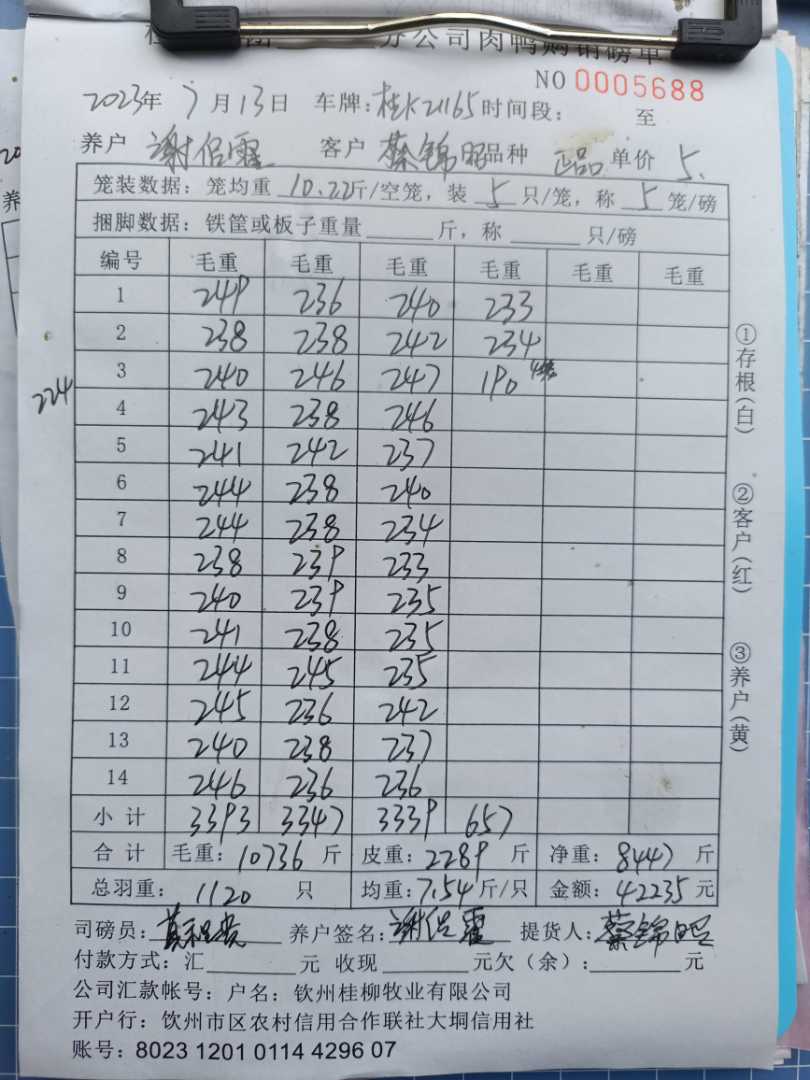 分公司肉鸭购销磅单
NO 0005688
2023年 7月13日 车牌:桂K21165 时间段: 至
养户 谢侶霍 客户 蔡锦昭 品种 正品 单价 5.
笼装数据: 笼均重 10.22斤/空笼, 装 5 只/笼, 称 5 笼/磅
捆脚数据: 铁筐或板子重量 斤, 称 只/磅
编号 毛重 毛重 毛重 毛重 毛重 毛重
1 249 236 240 233
2 238 238 242 234
3 240 246 247 190 4笼
224
4 243 238 246
5 241 242 237
6 244 238 240
7 244 238 234
8 238 239 233
9 240 239 235
10 241 238 235
11 244 245 235
12 245 236 242
13 240 238 237
14 246 236 236
小计 3393 3347 3339 657
合计 毛重: 10736 斤 皮重: 2289 斤 净重: 8447 斤
总羽重: 1120 只 均重: 7.54斤/只 金额: 42235元
司磅员: 养户签名: 谢侶霍 提货人: 蔡锦昭
付款方式: 汇 元 收现 元欠(余): 元
公司汇款帐号: 户名: 钦州桂柳牧业有限公司
开户行: 钦州市区农村信用合作联社大垌信用社
账号: 8023 1201 0114 4296 07
①存根(白)
②客户(红)
③养户(黄)